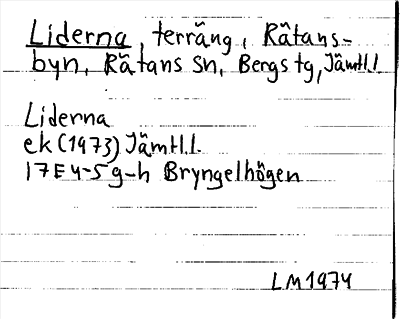 Liderna, terräng, Rätans-
byn, Rätans sn, Bergs tg, Jämtl.l.
Liderna
ek (1973) Jämtl.l.
17E 4-5 g-h Bryngelhögen
LM 1974